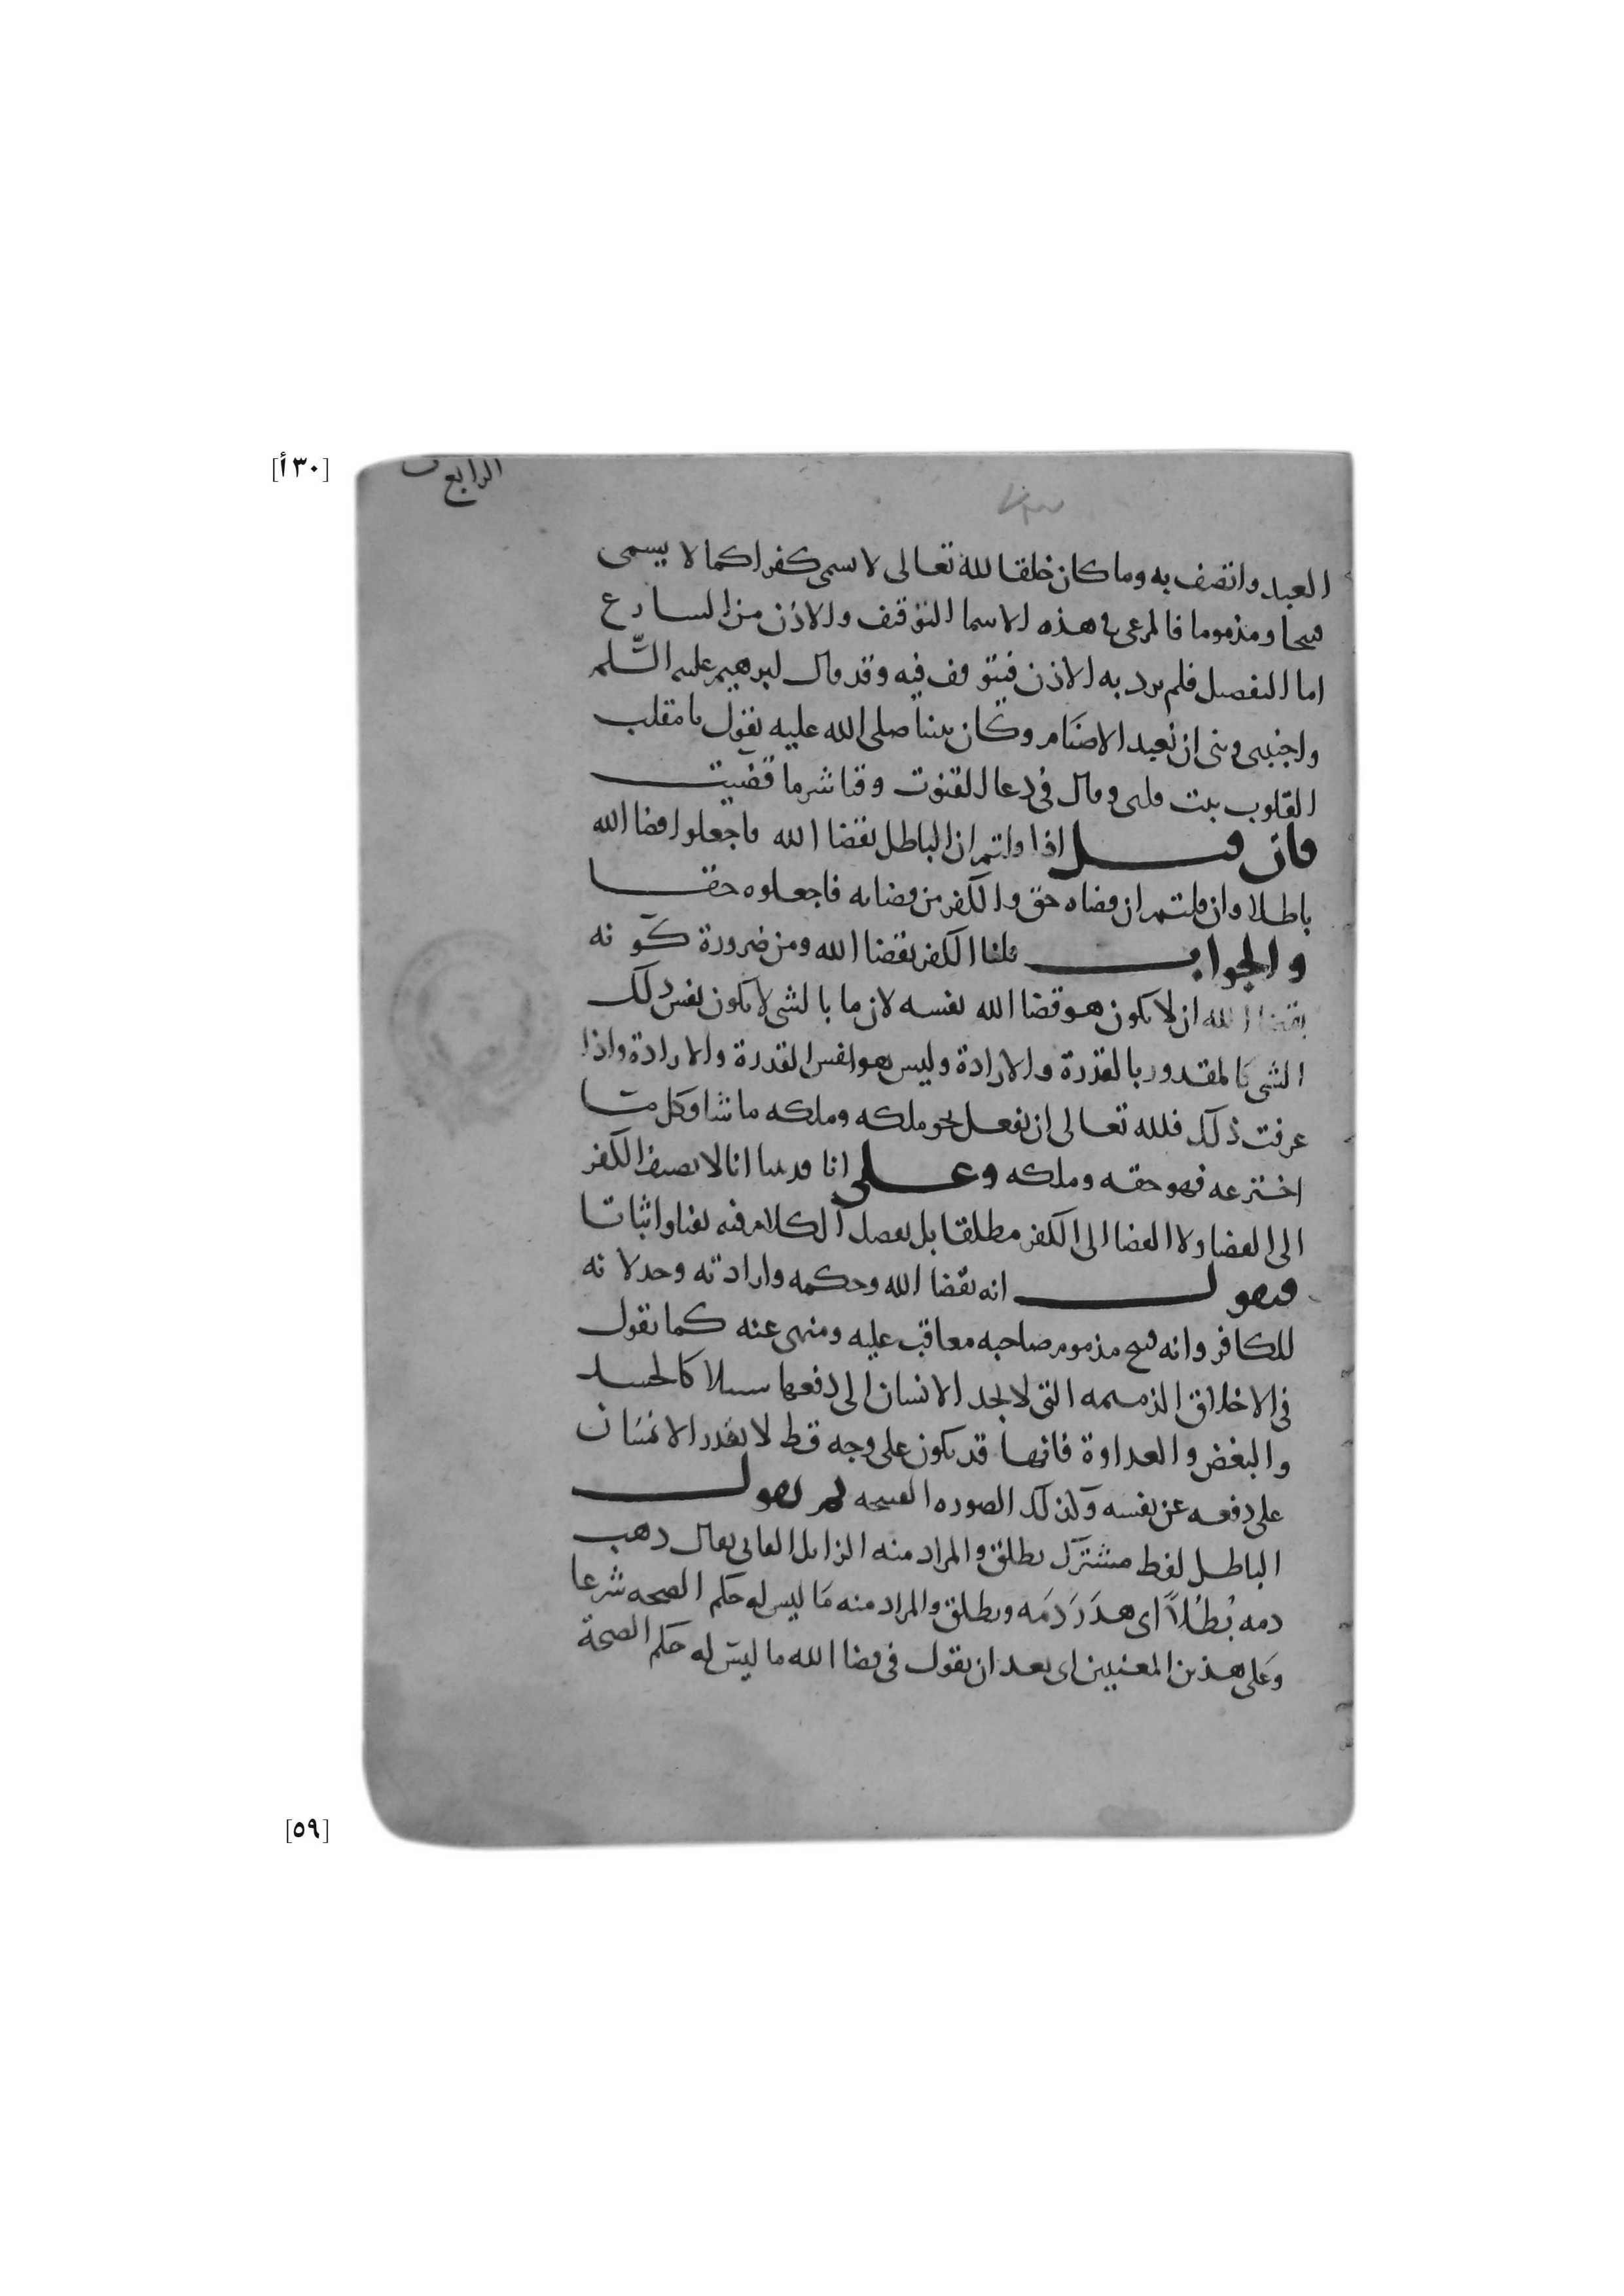 [٣٠أ]
الرابع
العبد واتصف به وما كان خلقا لله تعالى لا سمى كفرا كما لا يسمى
قبيحا ومذموما فالمرعى في هذه الاسما التوقف والاذن من الشارع
اما التفصيل فلم يرد به الاذن فيتوقف فيه وقد قال ابرهيم عليه السّلم
واجنبنى وبنى ان نعبد الاصنام وكان نبينا صلى الله عليه يقول يا مقلب
القلوب ثبت قلبى وقال فى دعا القنوت وقنا شر ما قضيت
فان قيل اذا قلتم ان الباطل بقضا الله فاجعلوا قضا الله
باطلا وان قلتم ان قضاه حق والكفر من قضايه فاجعلوه حقا
والجواب قلنا الكفر بقضا الله ومن ضرورة كونه
بقضا الله ان لا يكون هو قضا الله نفسه لان ما بالشى لا يكون نفس ذلك
الشى كالمقدور بالقدرة والارادة وليس هو نفس القدرة والارادة واذا
عرفت ذلك فلله تعالى ان يفعل بحق ملكه وملكه ما شا وكل ما
اخترعه فهو حقه وملكه وعلى انا قد بينا انا لا نضيف الكفر
الى القضا ولا القضا الى الكفر مطلقا بل نفصل الكلام فيه نفيا واثباتا
فنقول انه بقضا الله وحكمه وارادته وخذلانه
للكافر وانه قبيح مذموم صاحبه معاقب عليه ومنهى عنه كما نقول
فى الاخلاق الذميمه التى لا يجد الانسان الى دفعها سبيلا كالحسد
والبغض والعداوة فانها قد يكون على وجه قط لا يقدر الانسان
على دفعه عن نفسه وكذلك الصوره القبيحه ثم نقول
الباطل لفظ مشترك يطلق والمراد منه الزايل الفانى يقال ذهب
دمه بُطْلاً اى هَدَرَ دَمَه ويطلق والمراد منه مَا ليس له حكم الصحه شرعا
وعلى هذين المعنيين اى بعد ان يقول فى قضا الله ما ليس له حكم الصحة
[٥٩]